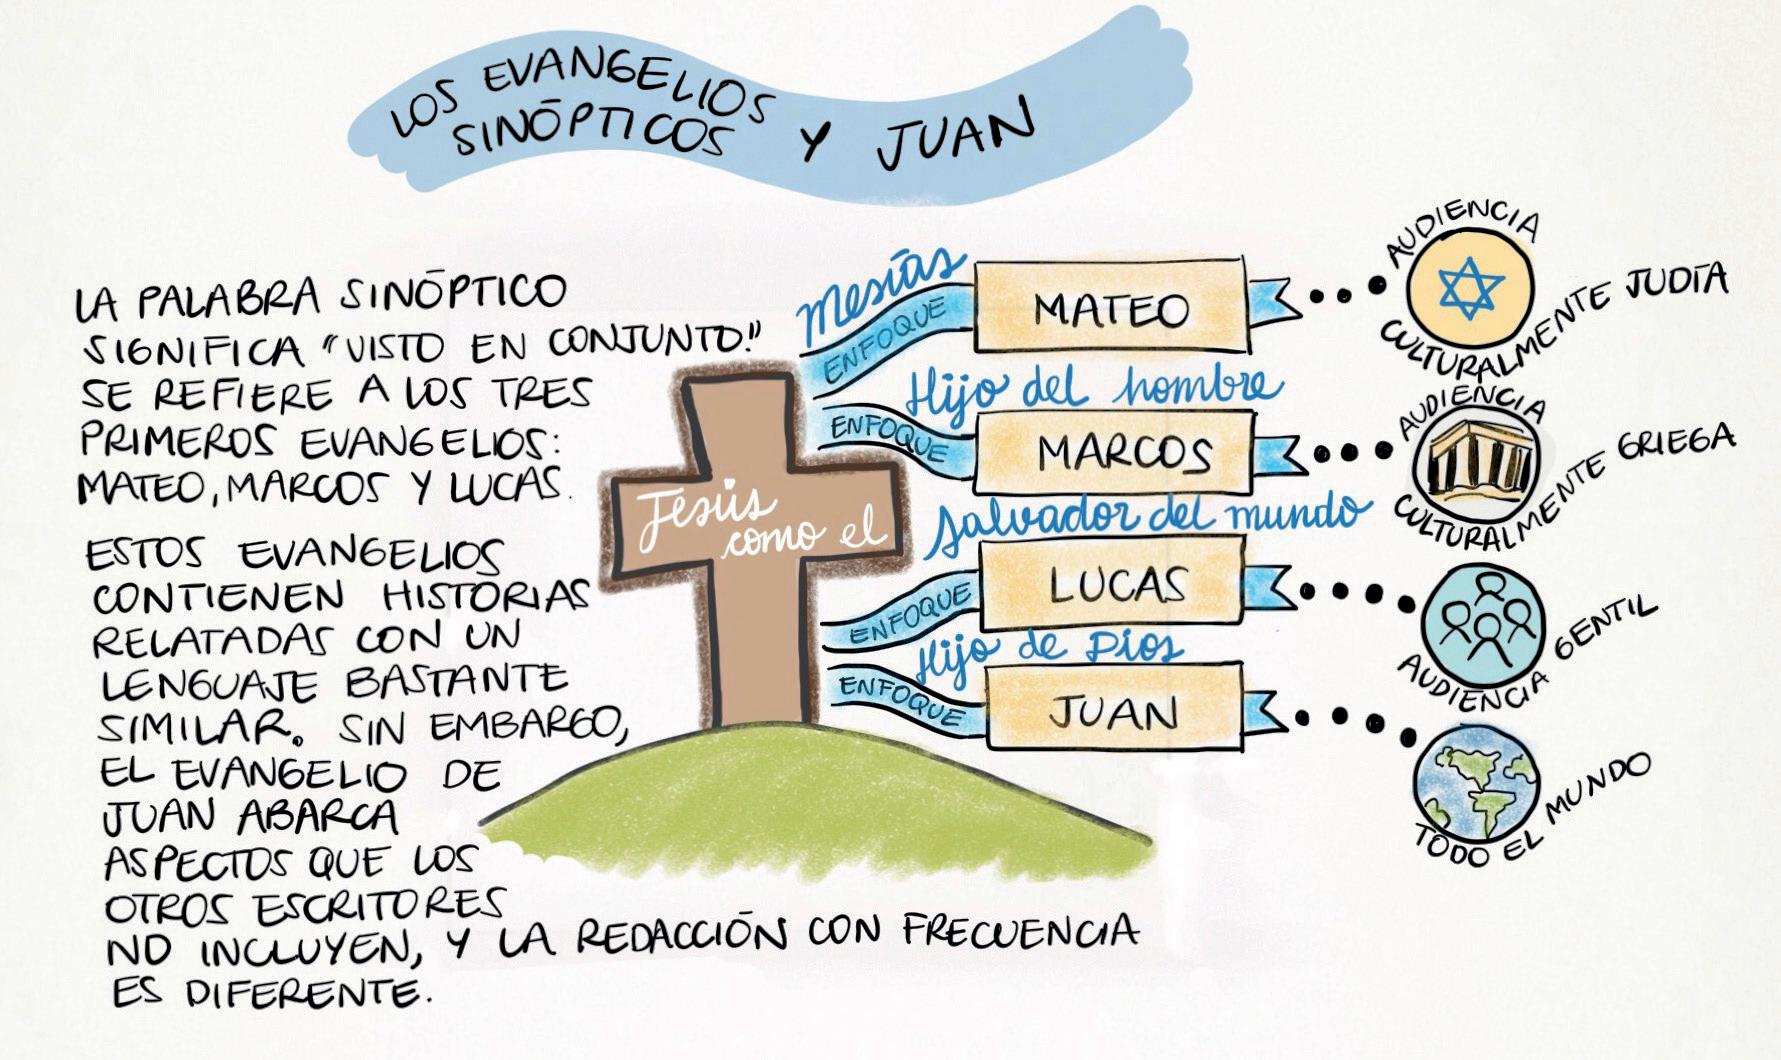 LOS EVANGELIOS
SINÓPTICOS Y JUAN
LA PALABRA SINÓPTICO
SIGNIFICA "VISTO EN CONJUNTO."
SE REFIERE A LOS TRES
PRIMEROS EVANGELIOS:
MATEO, MARCOS Y LUCAS.
ESTOS EVANGELIOS
CONTIENEN HISTORIAS
RELATADAS CON UN
LENGUAJE BASTANTE
SIMILAR. SIN EMBARGO,
EL EVANGELIO DE
JUAN ABARCA
ASPECTOS QUE LOS
OTROS ESCRITORES
NO INCLUYEN, Y LA REDACCIÓN CON FRECUENCIA
ES DIFERENTE.
Jesús
como el
Mesías
ENFOQUE
MATEO
AUDIENCIA
CULTURALMENTE JUDÍA
Hijo del hombre
ENFOQUE
MARCOS
AUDIENCIA
CULTURALMENTE GRIEGA
Salvador del mundo
ENFOQUE
LUCAS
AUDIENCIA GENTIL
Hijo de Dios
ENFOQUE
JUAN
TODO EL MUNDO